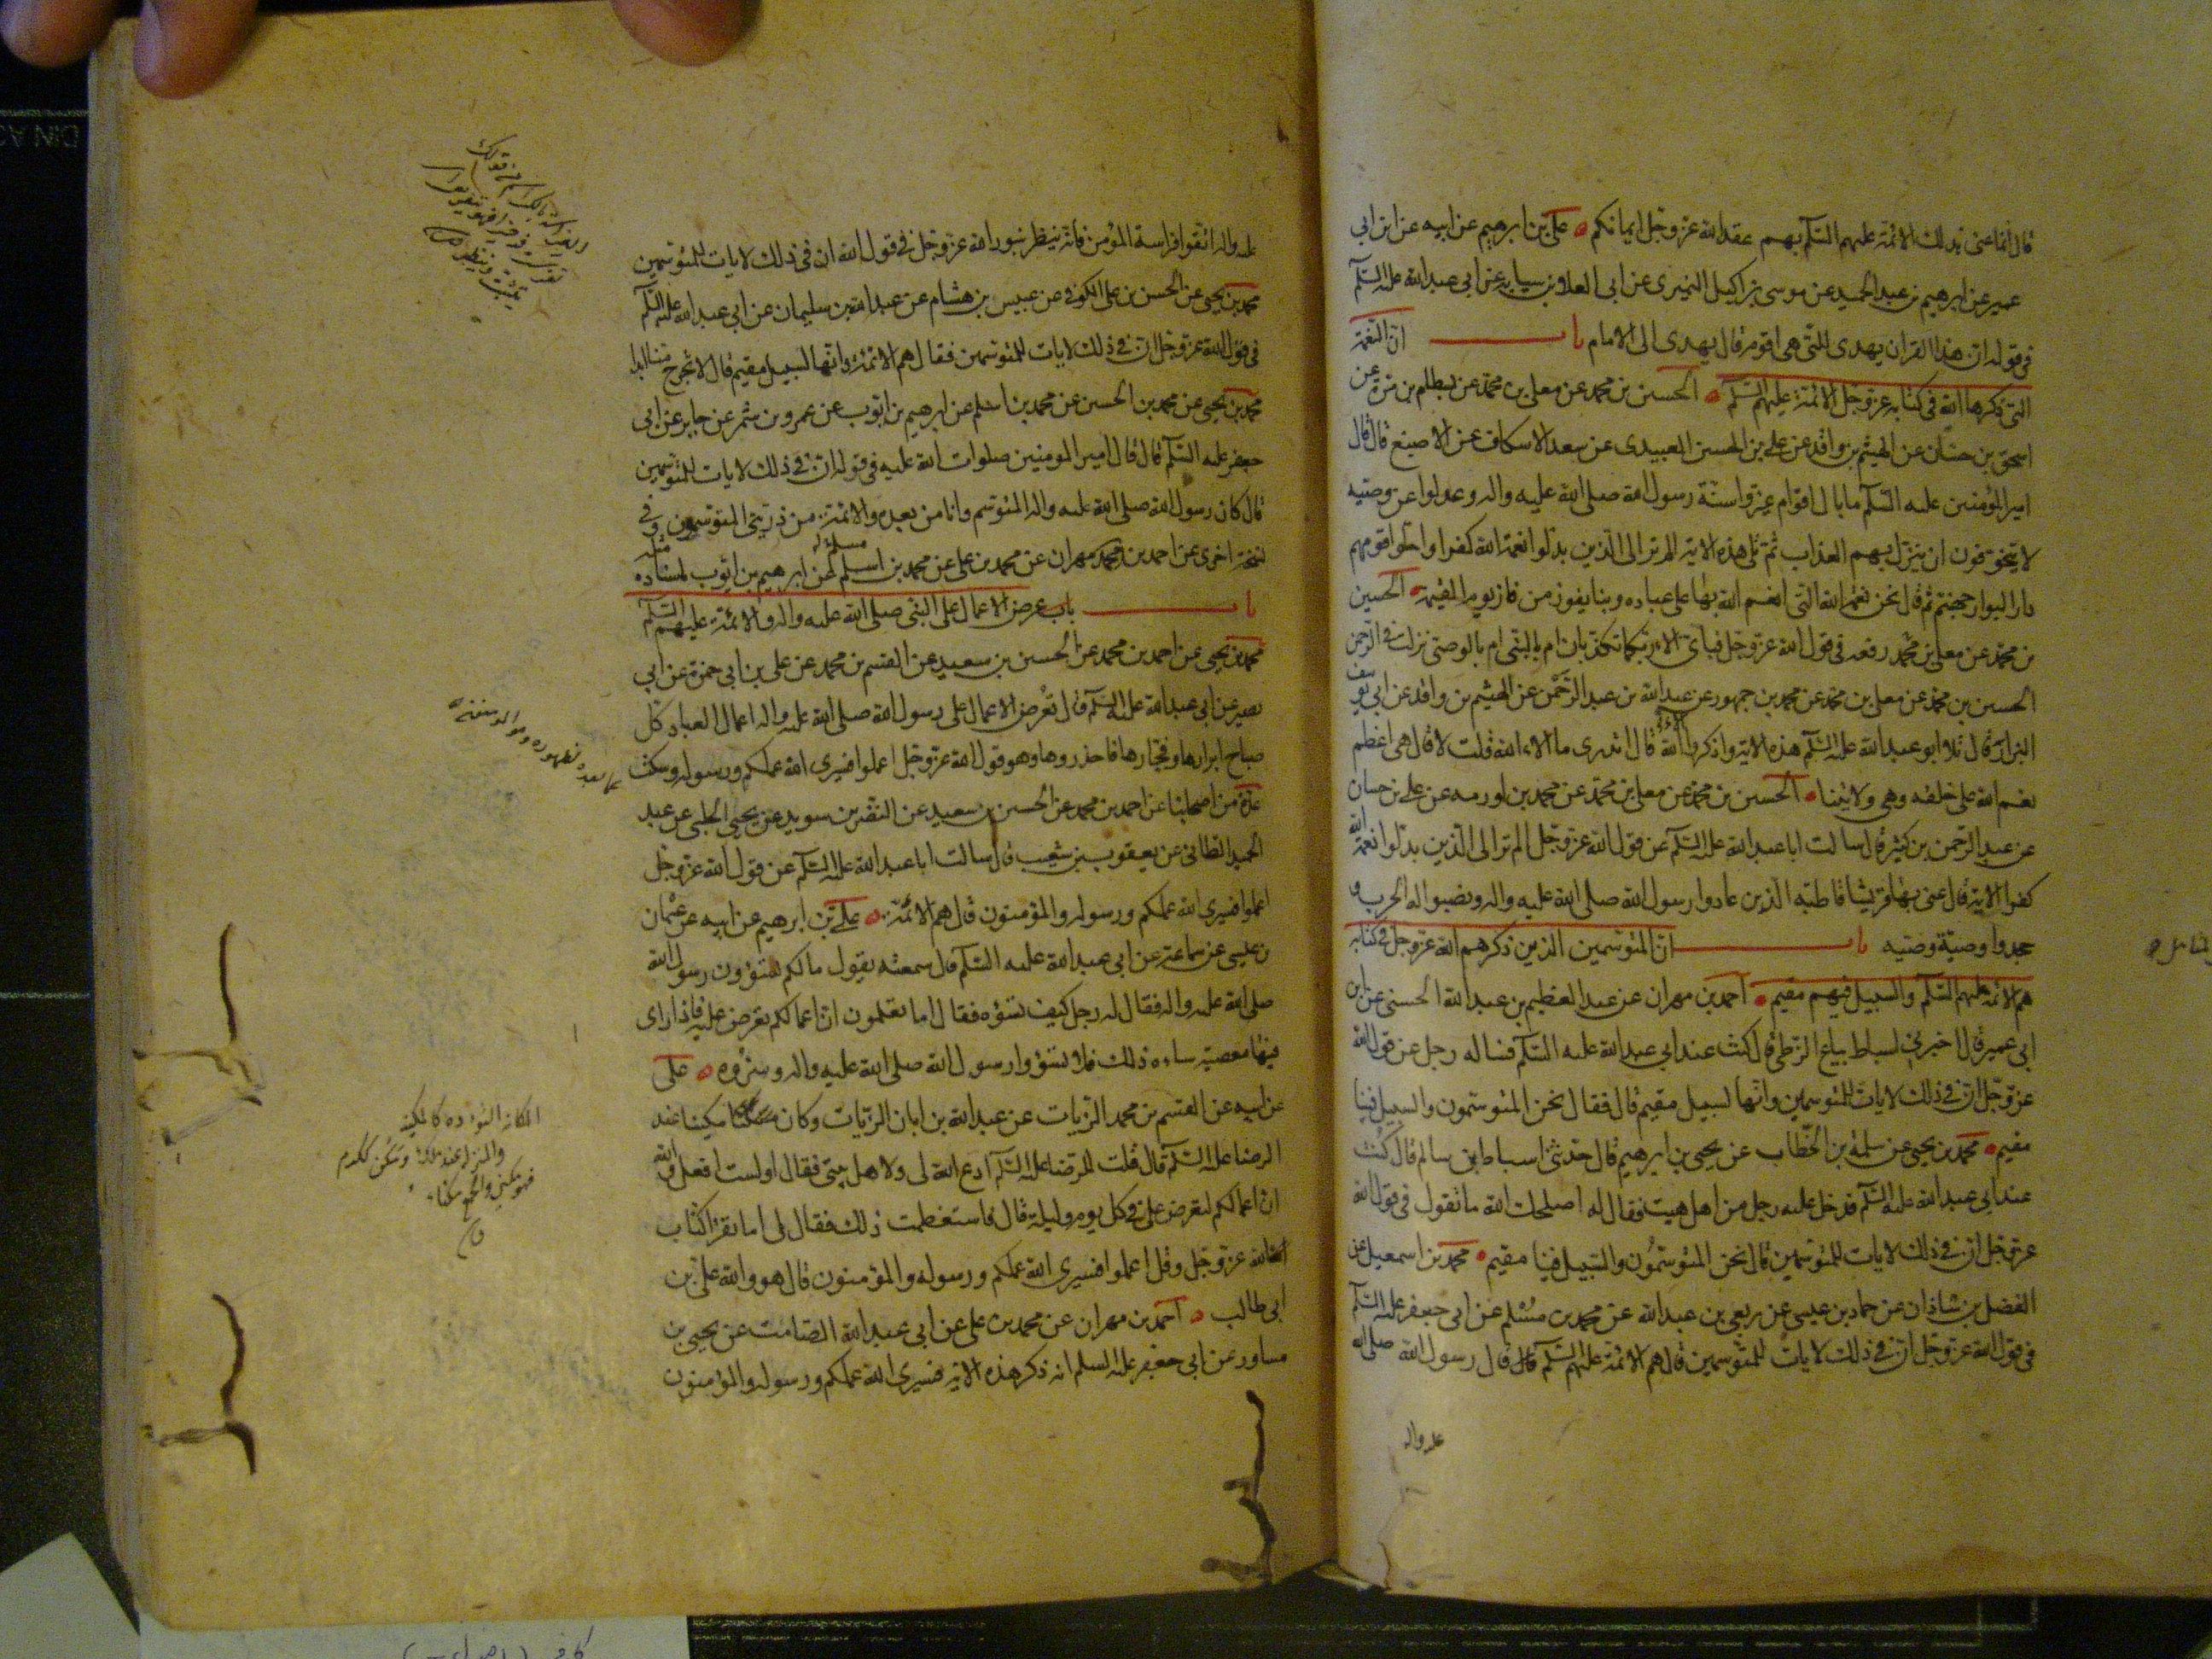 قال انما عنى بذلك الائمة عليهم السلم بهم عقد الله عز وجل ايمانكم علي بن ابرهيم عن ابيه عن ابن ابي
عمير عن ابرهيم بن عبد الحميد عن موسى بن اكيل النميرى عن ابى العلاء بن سيابه عن ابى عبد الله عليه السلم
فى قوله ان هذا القران يهدى للتى هى اقوم قال يهدى الى الامام باب ان النعمة
التى ذكرها الله فى كتابه عز وجل الائمة عليهم السلم الحسين بن محمد عن معلى بن محمد عن بسطام بن مرة عن
اسحق بن حسان عن الهيثم بن واقد عن على بن الحسين العبيدى عن سعد الاسكاف عن الاصبغ قال قال
امير المؤمنين عليه السلم ما بال اقوام غيروا سنة رسول الله صلى الله عليه واله وعدلوا عن وصيه
لا يتخوفون ان ينزل بهم العذاب ثم تلى هذه الاية الم تر الى الذين بدلوا نعمة الله كفرا واحلوا قومهم
دار البوار جهنم ثم قال نحن نعمة الله التى انعم الله بها على عباده وبنا يفوز من فاز يوم القيمة الحسين
بن محمد عن معلى بن محمد رفعه فى قول الله عز وجل فباى الاء ربكما تكذبان ام بالنبى ام بالوصى نزلت فى الرحمن
الحسين بن محمد عن معلى بن محمد عن محمد بن جمهور عن عبد الله بن عبد الرحمن عن الهيثم بن واقد عن ابى يوسف
البزاز قال تلا ابو عبد الله عليه السلم هذه الاية واذكروا الاء الله قال اتدرى ما الاء الله قلت لا قال هى اعظم
نعم الله على خلقه وهى ولايتنا الحسين بن محمد عن معلى بن محمد عن محمد بن اورمه عن على بن حسان
عن عبد الرحمن بن كثير قال سالت ابا عبد الله عليه السلم عن قول الله عز وجل الم تر الى الذين بدلوا نعمة الله
كفرا الاية قال عنى بها قريشا قاطبة الذين عادوا رسول الله صلى الله عليه واله ونصبوا له الحرب و
جحدوا وصية وصيه باب ان المتوسمين الذين ذكرهم الله عز وجل فى كتابه
هم الائمة عليهم السلم والسبيل فيهم مقيم احمد بن مهران عن عبد العظيم بن عبد الله الحسنى عن ابن
ابى عمير قال اخبرنى اسباط بياع الزطى قال كنت عند ابى عبد الله عليه السلم فساله رجل عن قول الله
عز وجل ان فى ذلك لايات للمتوسمين وانها لسبيل مقيم قال فقال نحن المتوسمون والسبيل فينا
مقيم محمد بن يحيى عن سلمة بن الخطاب عن يحيى بن ابرهيم قال حدثنى اسباط بن سالم قال كنت
عند ابى عبد الله عليه السلم فدخل عليه رجل من اهل هيت فقال له اصلحك الله ما تقول فى قول الله
عز وجل ان فى ذلك لايات للمتوسمين قال نحن المتوسمون والسبيل فينا مقيم محمد بن اسمعيل عن
الفضل بن شاذان عن حماد بن عيسى عن ربعى بن عبد الله عن محمد بن مسلم عن ابى جعفر عليه السلم
فى قول الله عز وجل ان فى ذلك لايات للمتوسمين قال هم الائمة عليهم السلم قال قال رسول الله صلى الله
عليه واله
عليه واله اتقوا فراسة المؤمن فانه ينظر بنور الله عز وجل فى قول الله ان فى ذلك لايات للمتوسمين
محمد بن يحيى عن الحسن بن على الكوفى عن عبيس بن هشام عن عبد الله بن سليمان عن ابى عبد الله عليه السلم
فى قول الله عز وجل ان فى ذلك لايات للمتوسمين فقال هم الائمة وانها لسبيل مقيم قال لا تخرج منا ابدا
محمد بن يحيى عن محمد بن الحسين عن محمد بن اسلم عن ابرهيم بن ايوب عن عمرو بن شمر عن جابر عن ابى
جعفر عليه السلم قال قال امير المومنين صلوات الله عليه فى قوله ان فى ذلك لايات للمتوسمين
قال كان رسول الله صلى الله عليه واله المتوسم وانا من بعده والائمة من ذريتى المتوسمين وفى
نسخة اخرى عن احمد بن محمد مهران عن محمد بن على عن محمد بن اسلم عن ابرهيم بن ايوب باسناده مثله
باب باب عرض الاعمال على النبى صلى الله عليه واله والائمة عليهم السلم
محمد بن يحيى عن احمد بن محمد عن الحسين بن سعيد عن القسم بن محمد عن على بن ابى حمزة عن ابى
بصير عن ابى عبد الله عليه السلم قال تعرض الاعمال على رسول الله صلى الله عليه واله اعمال العباد كل
صباح ابرارها وفجارها فاحذروها وهو قول الله عز وجل اعملوا فسيرى الله عملكم ورسوله وسكت
عدة من اصحابنا عن احمد بن محمد عن الحسين بن سعيد عن النضر بن سويد عن يحيى الحلبى عن عبد
الحميد الطائى عن يعقوب بن شعيب قال سالت ابا عبد الله عليه السلم عن قول الله عز وجل
اعملوا فسيرى الله عملكم ورسوله والمؤمنون قال هم الائمة علي بن ابرهيم عن ابيه عن عثمان
بن عيسى عن سماعة عن ابى عبد الله عليه السلم قال سمعته يقول ما لكم تسوؤن رسول الله
صلى الله عليه واله فقال له رجل كيف نسوؤه فقال اما تعلمون ان اعمالكم تعرض عليه فاذا راى
فيها معصية ساءه ذلك فلا تسوؤا رسول الله صلى الله عليه واله وسروه على
عن ابيه عن القسم بن محمد الزيات عن عبد الله بن ابان الزيات وكان مكينا عند
الرضا عليه السلم قال قلت للرضا عليه السلم ادع الله لى ولاهل بيتى فقال اولست افعل والله
ان اعمالكم لتعرض على فى كل يوم وليلة قال فاستعظمت ذلك فقال لى اما تقرا كتاب
الله عز وجل وقل اعملوا فسيرى الله عملكم ورسوله والمؤمنون قال هو والله على بن
ابى طالب احمد بن مهران عن محمد بن على عن ابى عبد الله الصامت عن يحيى بن
مساور عن ابى جعفر عليه السلم انه ذكر هذه الاية فسيرى الله عملكم ورسوله والمؤمنون